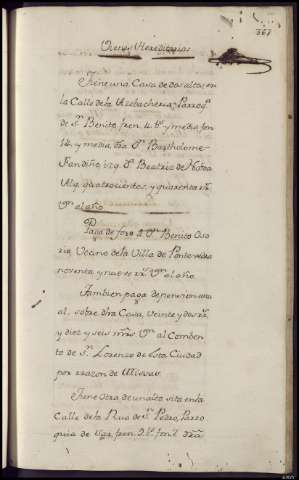 361
Vienes Hereditarios
Tiene una Casa de dos altos, en
la Calle de la Azebacheria, Parroq.ª
de S.ⁿ Benito, fren. 4. v.s y media fon
14. y media, dra D.ⁿ Bartholome
Fandiño, izq. D.ª Beatriz de
Alq. quatrocientos, y quarenta r.s
V.ⁿ al año
Paga de foro á D.ⁿ Benito
Vecino de la Villa de Pontevedra
noventa y nueve r.s V.ⁿ al año.
Tambien paga de pension anu
al, sobre dha Casa, veinte y dos r.s
y diez y seis mrs. V.ⁿ al Comben
to de S.ⁿ Lorenzo de esta Ciudad
por razon de Missas.
Tiene otra, de un alto sita en la
Calle de la Rua de S.ⁿ Pedro, Parro
quia de fren. fon. dra